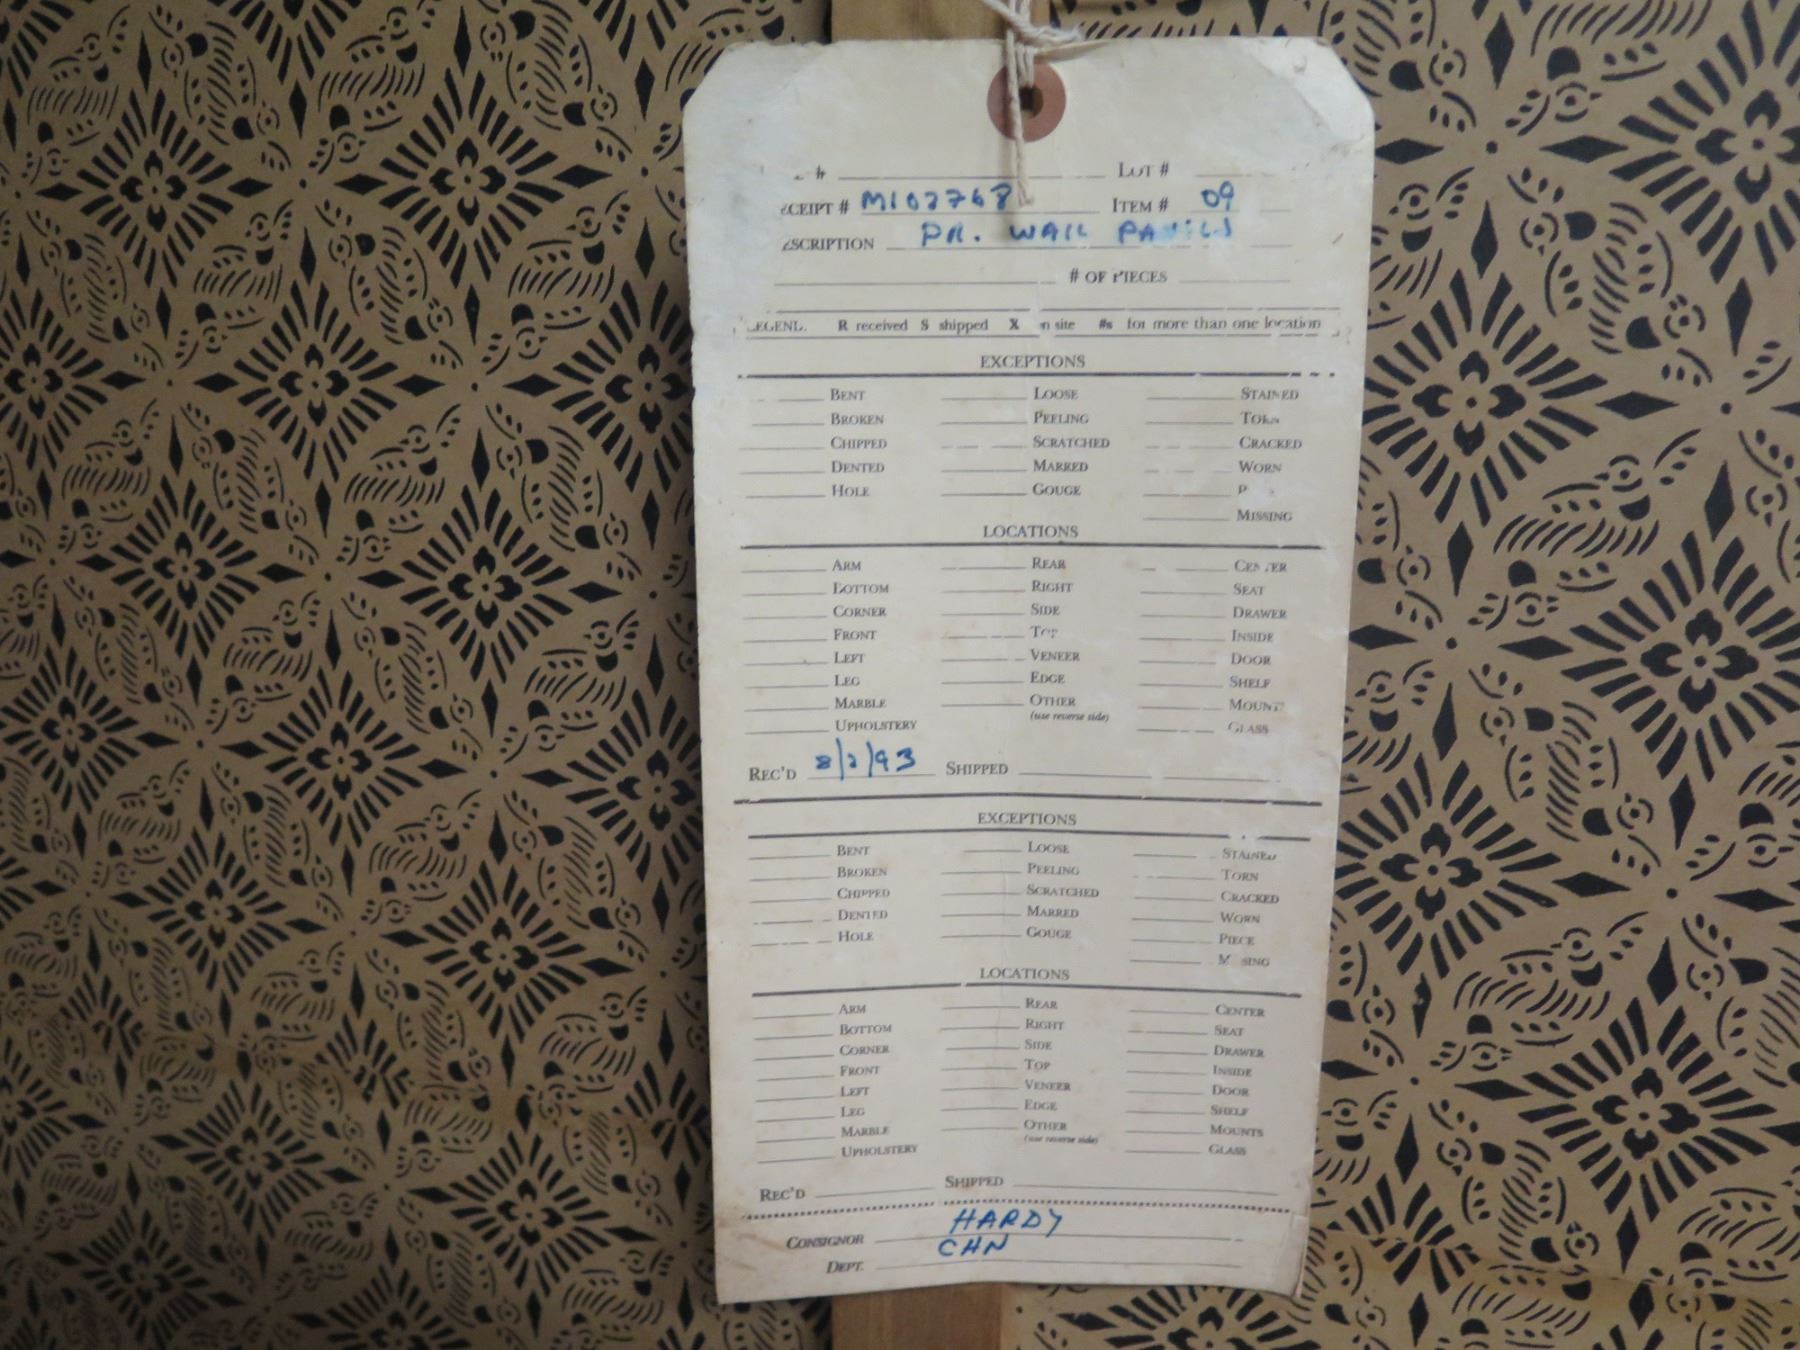 # LOT #
CEIPT # M102768 ITEM # 09
ESCRIPTION PR. WALL PANELS
# OF PIECES
LEGEND. R received S shipped X on site #s for more than one location
EXCEPTIONS
BENT LOOSE STAINED
BROKEN PEELING TORN
CHIPPED SCRATCHED CRACKED
DENTED MARRED WORN
HOLE GOUGE P
MISSING
LOCATIONS
ARM REAR CENTER
BOTTOM RIGHT SEAT
CORNER SIDE DRAWER
FRONT TOP INSIDE
LEFT VENEER DOOR
LEG EDGE SHELF
MARBLE OTHER MOUNT
(use reverse side)
UPHOLSTERY GLASS
REC'D 8/2/93 SHIPPED
EXCEPTIONS
BENT LOOSE STAINED
BROKEN PEELING TORN
CHIPPED SCRATCHED CRACKED
DENTED MARRED WORN
HOLE GOUGE PIECE
M SING
LOCATIONS
ARM REAR CENTER
BOTTOM RIGHT SEAT
CORNER SIDE DRAWER
FRONT TOP INSIDE
LEFT VENEER DOOR
LEG EDGE SHELF
MARBLE OTHER MOUNTS
(use reverse side)
UPHOLSTERY GLASS
REC'D SHIPPED
CONSIGNOR HARDY
DEPT. CHN